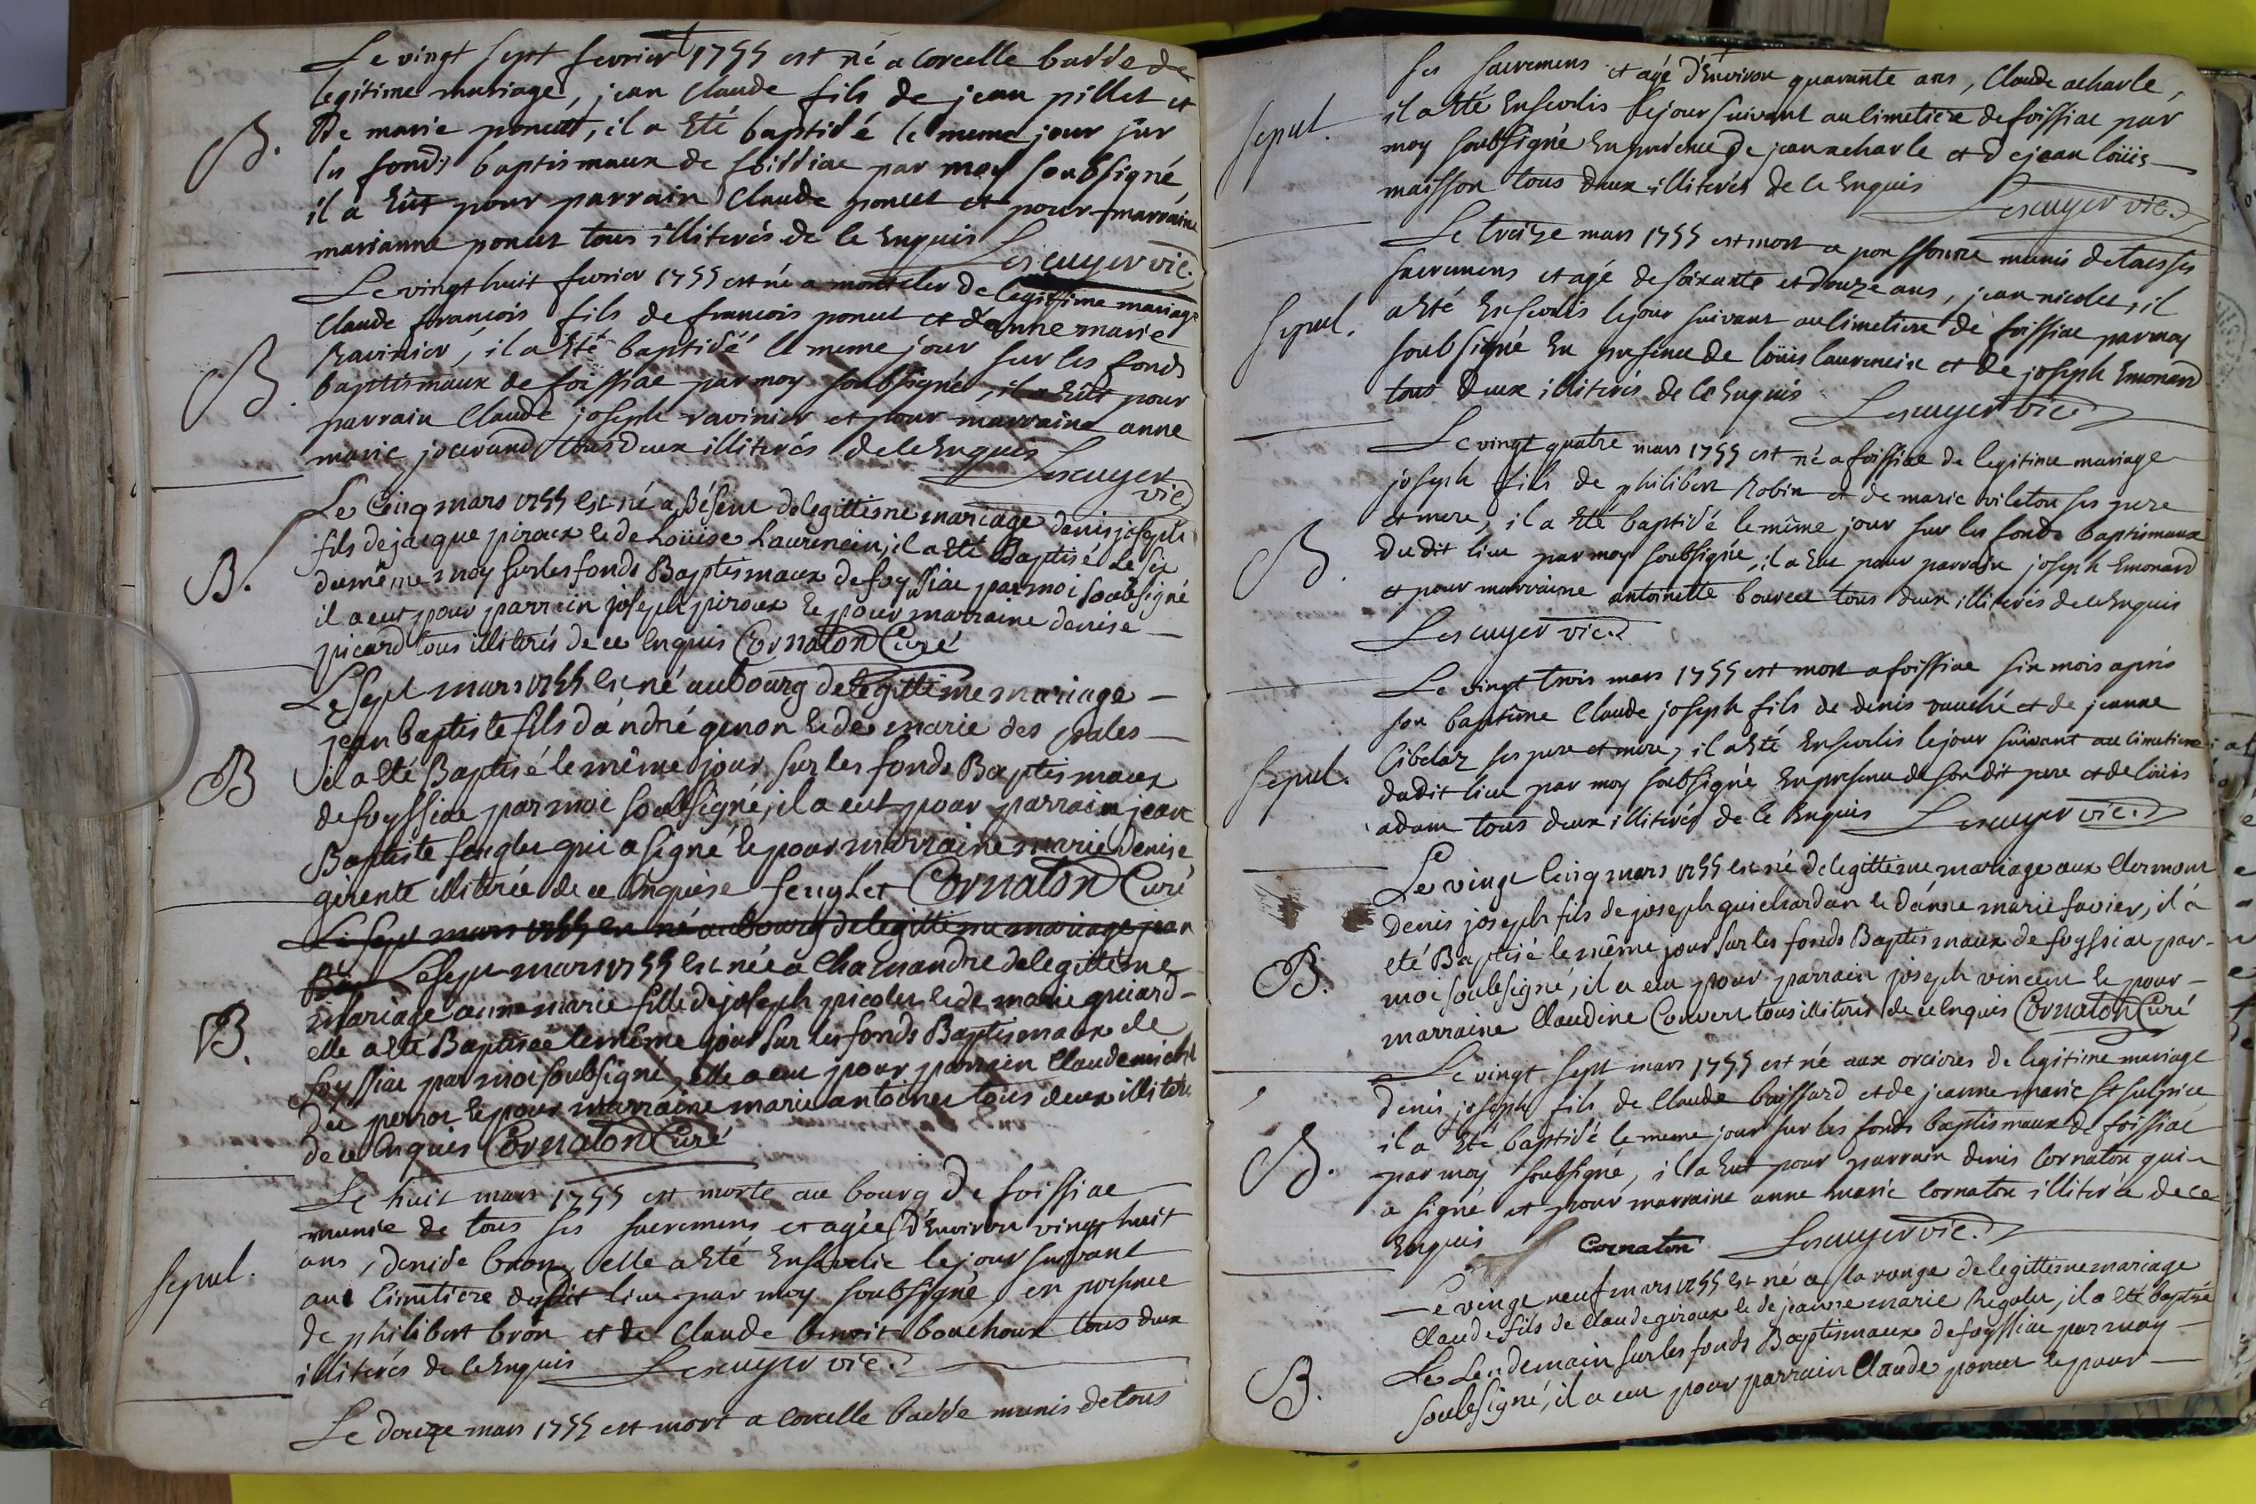 Le vingt sept fevrier 1755 est né a Corcelle basse de
legitime mariage, jean Claude fils de jean pillet et
De marie poncet, il a Eté baptisé le meme jour sur
les fonds baptismaux de foissiac par moy soubsigné
il a Eût pour parrain Claude poncet et pour marraine
marianne poncet tous illiterés de ce Enquis Lescuyer vic.
B.
Le vingt huit fevrier 1755 est né a de legitime mariage
Claude francois fils de francois poncet et d'anne marie
Ravinier, il a Eté baptisé le meme jour sur les fonds
baptismaux de foissiac par moy soubsigné, il a Eût pour
parrain Claude joseph ravinier et pour marraine anne
marie jocerand tous deux illiterés de ce Enquis Lescuyer
vic.
B.
Le Cinq mars 1755 est né a Bésent de legittisme mariage denis joseph
fils de jacque piroux et de Loüise Laurencin, il a eté Baptisé Le six
du même moy sur les fonds Baptismaux de foyssiac par moi soubsigné
il a eut pour parrain joseph piroux et pour marraine denise
picard tous illiterés de ce enquis Cornaton Curé
B.
Le sept mars 1755 est né au bourg de legittime mariage
jean baptiste fils d'andré genon et de marie des
il a eté Baptisé le même jour sur les fonds Baptismaux
de foyssiac par moi soubsigné, il a eut pour parrain jean
Baptiste fenglet qui a signé et pour marraine marie denise
girente illiterée de ce enquise fenglet Cornaton Curé
B
Le sept mars 1755 est né au bourg de legittime mariage jean
Bap Le sept mars 1755 est née a Chamandre de legittime
mariage anne marie fille de joseph picolet et de marie guiard
elle a eté Baptisée le même jour sur les fonds Baptismaux de
foyssiac par moi soubsigné, elle a eu pour parrain Claude michel
du perroi et pour marraine marie antoinet tous deux illiterés
de ce enquis Cornaton Curé
B.
Le huit mars 1755 est morte au bourg de foissiac
munie de tous ses sacremens et agée d'Environ vingt huit
ans, denise bron, elle a Eté Ensevelie le jour suivant
au Cimetiere dudit lieu par moy soubsigné, en presence
de philibert brön et de Claude benoit bouchoux tous deux
illiterés de ce Enquis Lescuyer vic.
sepul.
Le douze mars 1755 est mort a Corcelle basse munis de tous
ses sacremens et agé d'Environ quarante ans, Claude acharle,
il a Eté Ensevelis le jour suivant au Cimetiere de foissiac par
moy soubsigné En presence de jean acharle et de jean loüis
maisson tous deux illiterés de ce Enquis Lescuyer vic.
sepul.
Le treize mars 1755 est mort a munis de tous ses
sacremens et agé de soixante et douze ans, jean nicolet, il
a Eté Ensevelis le jour suivant au Cimetiere de foissiac par moy
soubsigné En presence de loüis laurencin et de joseph Emonard
tous deux illiterés de ce Enquis Lescuyer vic.
sepul.
Le vingt quatre mars 1755 est né a foissiac de legitime mariage
joseph fils de philibert Robin et de marie vileton ses pere
et mere, il a Eté baptisé le même jour sur les fonds baptismaux
Dudit lieu par moy soubsigné, il a Eu pour parrain joseph Emonard
et pour marraine antoinette bourcet tous deux illiterés de ce Enquis
Lescuyer vic.
B.
Le vingt trois mars 1755 est mort a foissiac six mois après
son baptême Claude joseph fils de denis vauché et de jeanne
Cibelaz ses pere et mere, il a Eté Ensevelis le jour suivant au Cimetiere
dudit lieu par moy soubsigné En presence de son dit pere et de loüis
adam tous deux illiterés de ce Enquis Lescuyer vic.
sepul.
Le vingt Cinq mars 1755 est né de legittisme mariage aux Clermont
denis joseph fils de joseph guichardan et d'anne marie favier, il a
eté Baptisé le même jour sur les fonds Baptismaux de foyssiac par
moi soubsigné, il a eu pour parrain joseph vincent et pour
marraine Claudine Convert tous illiterés de ce enquis Cornaton Curé
B.
Le vingt sept mars 1755 est né aux orcieres de legitime mariage
denis joseph fils de Claude buissard et de jeanne marie St sulpice
il a Eté baptisé le meme jour sur les fonds baptismaux de foissiac
par moy soubsigné, il a Eut pour parrain denis Cornaton qui
a signé et pour marraine anne marie Cornaton illiterée de ce
Enquis Cornaton Lescuyer vic.
B.
Le vingt neuf mars 1755 est né a la ronge de legittisme mariage
Claude fils de Claude giroux et de jeanne marie Rigolet, il a eté baptisé
Le Lendemain sur les fonds Baptismaux de foyssiac par moy
soubsigné, il a eu pour parrain Claude poncet et pour
B.